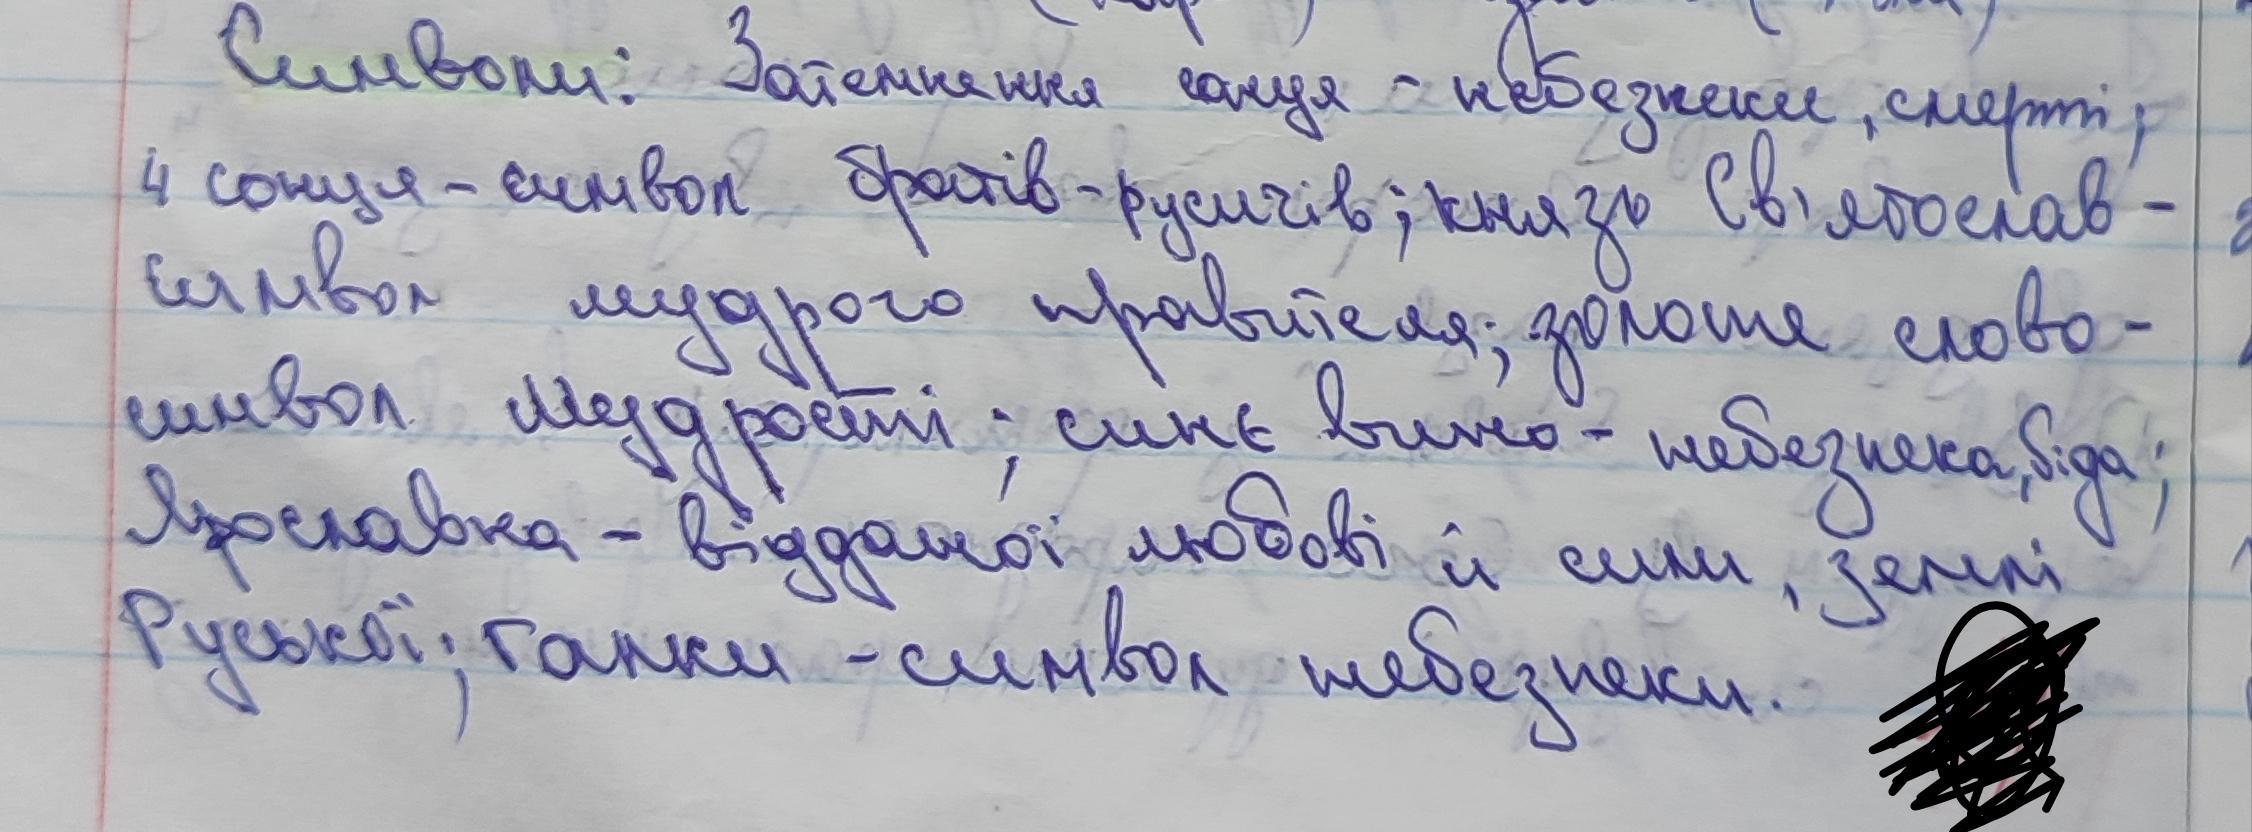 Символи: Затемнення сонця - небезпеки, смерті;
4 сонця - символ братів-русичів; князь Св'ятослав -
символ мудрого правителя; золоте слово -
символ мудрості; синє вино - небезпека, біда;
Ярославна - відданої любові й сили, землі
Руської; галки - символ небезпеки.